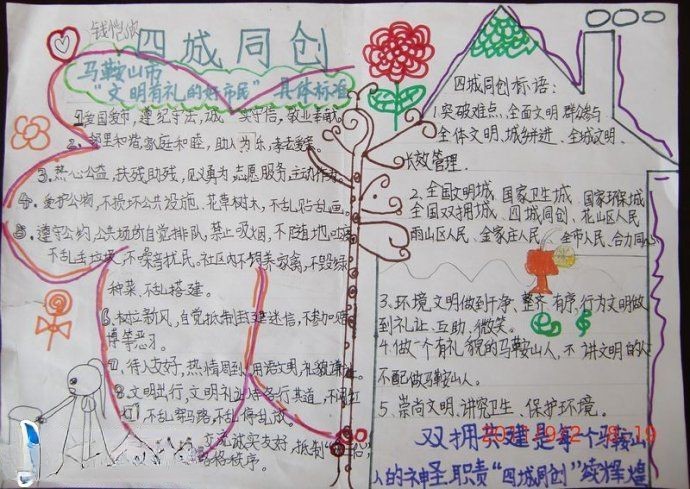 四城同创
马鞍山市
"文明有礼的好市民" 具体标准
1.爱国爱市,遵纪守法,诚实守信,敬业奉献。
2.邻里和谐,家庭和睦,助人为乐,孝老爱亲。
3.热心公益,扶残助残,见义勇为,志愿服务,主动作为。
4.爱护公物,不损坏公共设施、花草树木,不乱贴乱画。
5.遵守公约,公共场所自觉排队,禁止吸烟,不随地吐痰
不乱丢垃圾,不噪音扰民。社区内不饲养家禽,不毁绿
种菜,不乱搭建。
6.树立新风,自觉抵制封建迷信,不参加赌
博等恶习。
7.待人友好,热情周到,用语文明,礼貌谦让。
8.文明出行,文明礼让,各行其道,不闯红
灯,不乱穿马路,不乱停乱放。
交流
秩序。
四城同创标语:
1.突破难点、全面文明 群众参与
全体文明、城乡并进、全域文明、
长效管理.
2、全国文明城、国家卫生城、国家环保城
全国双拥城、四城同创、花山区人民
雨山区人民、金家庄人民、全市人民、合力同心
3、环境文明做到干净、整齐有序,行为文明做
到礼让、互助、微笑。
4.做一个有礼貌的马鞍山人、不讲文明的人
不配做马鞍山人。
5、崇尚文明、讲究卫生、保护环境。
双拥共建是每个马鞍山
人的神圣职责"四城同创"